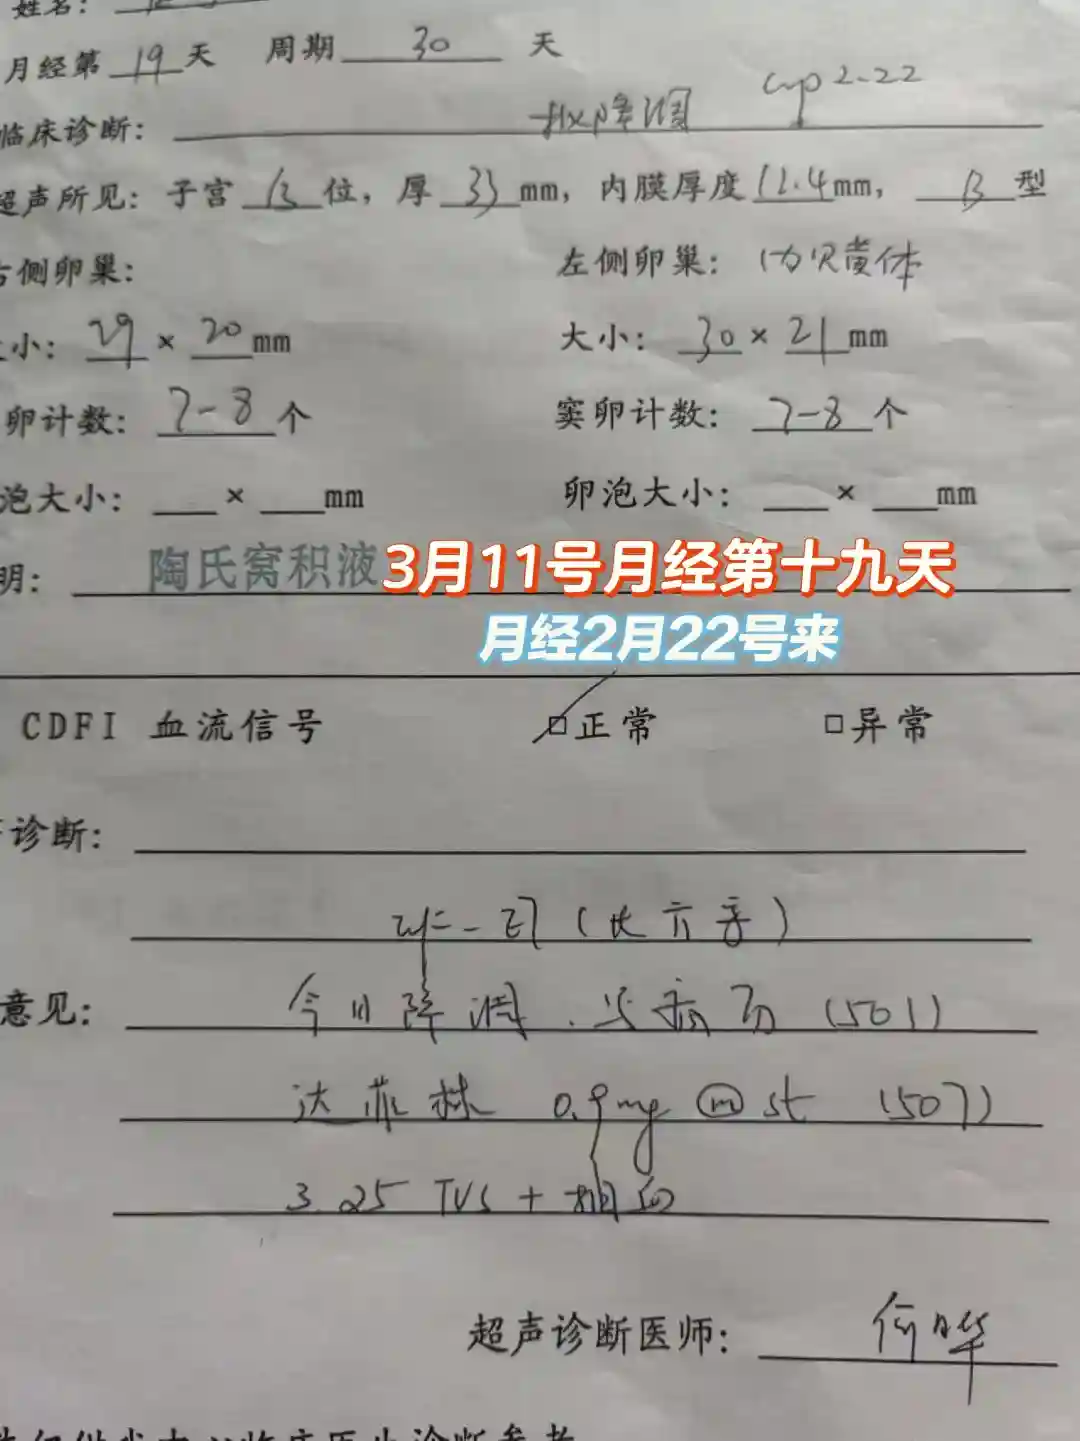 姓名:
月经第 19 天 周期 30 天
临床诊断: 拟降调 Lmp 2-22
超声所见: 子宫 位, 厚 33 mm, 内膜厚度 12.4 mm, B 型
右侧卵巢: 左侧卵巢: 内见黄体
大小: 29 × 20 mm 大小: 30 × 21 mm
卵计数: 7-8 个 窦卵计数: 7-8 个
泡大小: × mm 卵泡大小: × mm
明: 陶氏窝积液
3月11号月经第十九天
月经2月22号来
CDFI 血流信号 □正常 □异常
诊断:
意见: 今日降调. 写病历 (501)
达菲林 0.9mg m st (507)
3.25 TVS + 抽血
超声诊断医师: 何晔